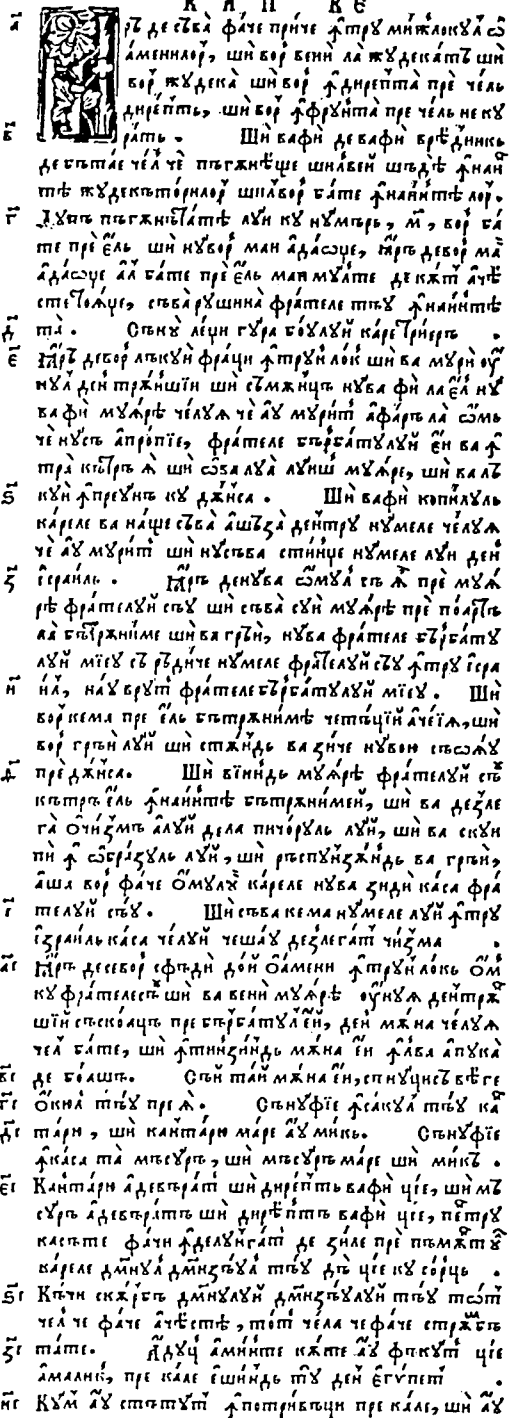 КАП КЕ
а҃ Ꙗръ де сѣ ва фаче приче ꙟтру мижлокулъ ѡ
аменилор, ши вор вени ла жудекатъ ши
вор жудека ши вор ꙟдирепта пре чель
дирепть, ши вор ꙟфрунта пре чель неку
в҃ рать. Ши ва фи де ва фи врѣдникь
де бътае чел че пъгѫнѣще ши л вей шѫдѣ ꙟнаи
тѣ жудекъторилор ши л вор бате ꙟнаинтѣ лор.
г҃ Дупъ пъгѫнътатѣ луи ку нумъръ, м҃, вор ба
те пре ель ши ну вор маи адаѡџе, ꙗръ де вор маи
адаѡџе ал бате пре ель маи мулте де кѫт ачѣ
сте тоꙗџе, съ ва рушина фрателе тъу ꙟнаинтѣ
д҃ та. Съ ну леџи гура боулуй каре триеръ.
е҃ Ꙗръ де вор лъкуй фраци ꙟтрун лок ши ва мури оу
нул ден трѫншїи ши съмѫнцъ ну ва фи ла ел ну
ва фи муꙗрѣ челуꙗ че ау мурит афаръ ла ѡмь
че нусъ апропїе, фрателе бърбатулуй ей ва ꙟ
тра кътръ ꙗ ши ѡ ва луа луиш муꙗре, ши ва лъ
ѕ҃ куй ꙟпреунъ ку дѫнса. Ши ва фи копилуль
кареле ва наще съ ва ашъза дентру нумеле челуꙗ
че ау мурит ши нусъ ва стинџе нумеле луи ден
з҃ Ісраиль. Ꙗръ де ну ва ѡмул съ ꙗ пре муꙗ
рѣ фрателуй съу ши съ ва суи муꙗрѣ пре поартъ
ла бътрѫниме ши ва грѣи, ну ва фрателе бърбату
луй мїеу съ рѣдиче нумеле фрателуй съу ꙟтру Ісра
и҃ ил, нау врут фрателе бърбатулуй мїеу. Ши
вор кема пре ель бътрѫнимѣ четъцїй ачеїꙗ, ши
вор грѣи луй ши стѫндь ва зиче ну вою съ ѡ ꙗу
ѳ҃ пре дѫнса. Ши вїиндь муꙗрѣ фрателуй съу
кътръ ель ꙟнаинтѣ бътрѫнимей, ши ва дезле
га ѻ чизмъ алуй дела пичоруль луй, ши ва скуи
пи ꙟ ѡбразуль луй, ши ръспунзѫндь ва грѣи,
аша вор фаче ѻмулуй кареле ну ва зиди каса фра
і҃ телуй съу. Ши съ ва кема нумеле луй ꙟтру
Ізраиль каса челуй че шау дезлегат чизма.
аі҃ Ꙗръ де се вор сфъди дой ѻамени ꙟтрун локь ѻм
ку фрателе съу ши ва вени муꙗрѣ оунуꙗ дентрѫ
шїй съ скоацъ пре бърбатул ей, ден мѫна челуꙗ
чел бате, ши ꙟтинзиндь мѫна ей ꙟл ва апука
ві҃ де боашъ. Съй тай мѫна ей, съ нуцись вѣге
гі҃ ѻкюл тъу пре ꙗ. Съ ну фїе ꙟ сакул тъу ка
ді҃ тарю, ши кантарю маре ау микь. Съ ну фїе
ꙟ каса та мъсуръ, ши мъсуръ маре ши микъ.
еі҃ Кантарю адевърат ши дирепть ва фи ціе, ши мъ
суръ адевъратъ ши дирѣптъ ва фи ціе, пентру
ка съ те фачи ꙟделунгат де зиле пре пъмѫнт у
кареле дмнул дмнзеул тъу дъ ціе ку сорць.
ѕі҃ Къчи скѫрбъ дмнулуй дмнзеулуй тъу тот
чел че фаче ачѣстѣ, тот чела че фаче стрѫмбъ
зі҃ тате. Аду ц аминте кѫте ау фъкут ціе
амалик, пре кале ешиндь ту ден Егѵпет.
иі҃ Кум ау стътут ꙟпотривъци пре кале, ши ау